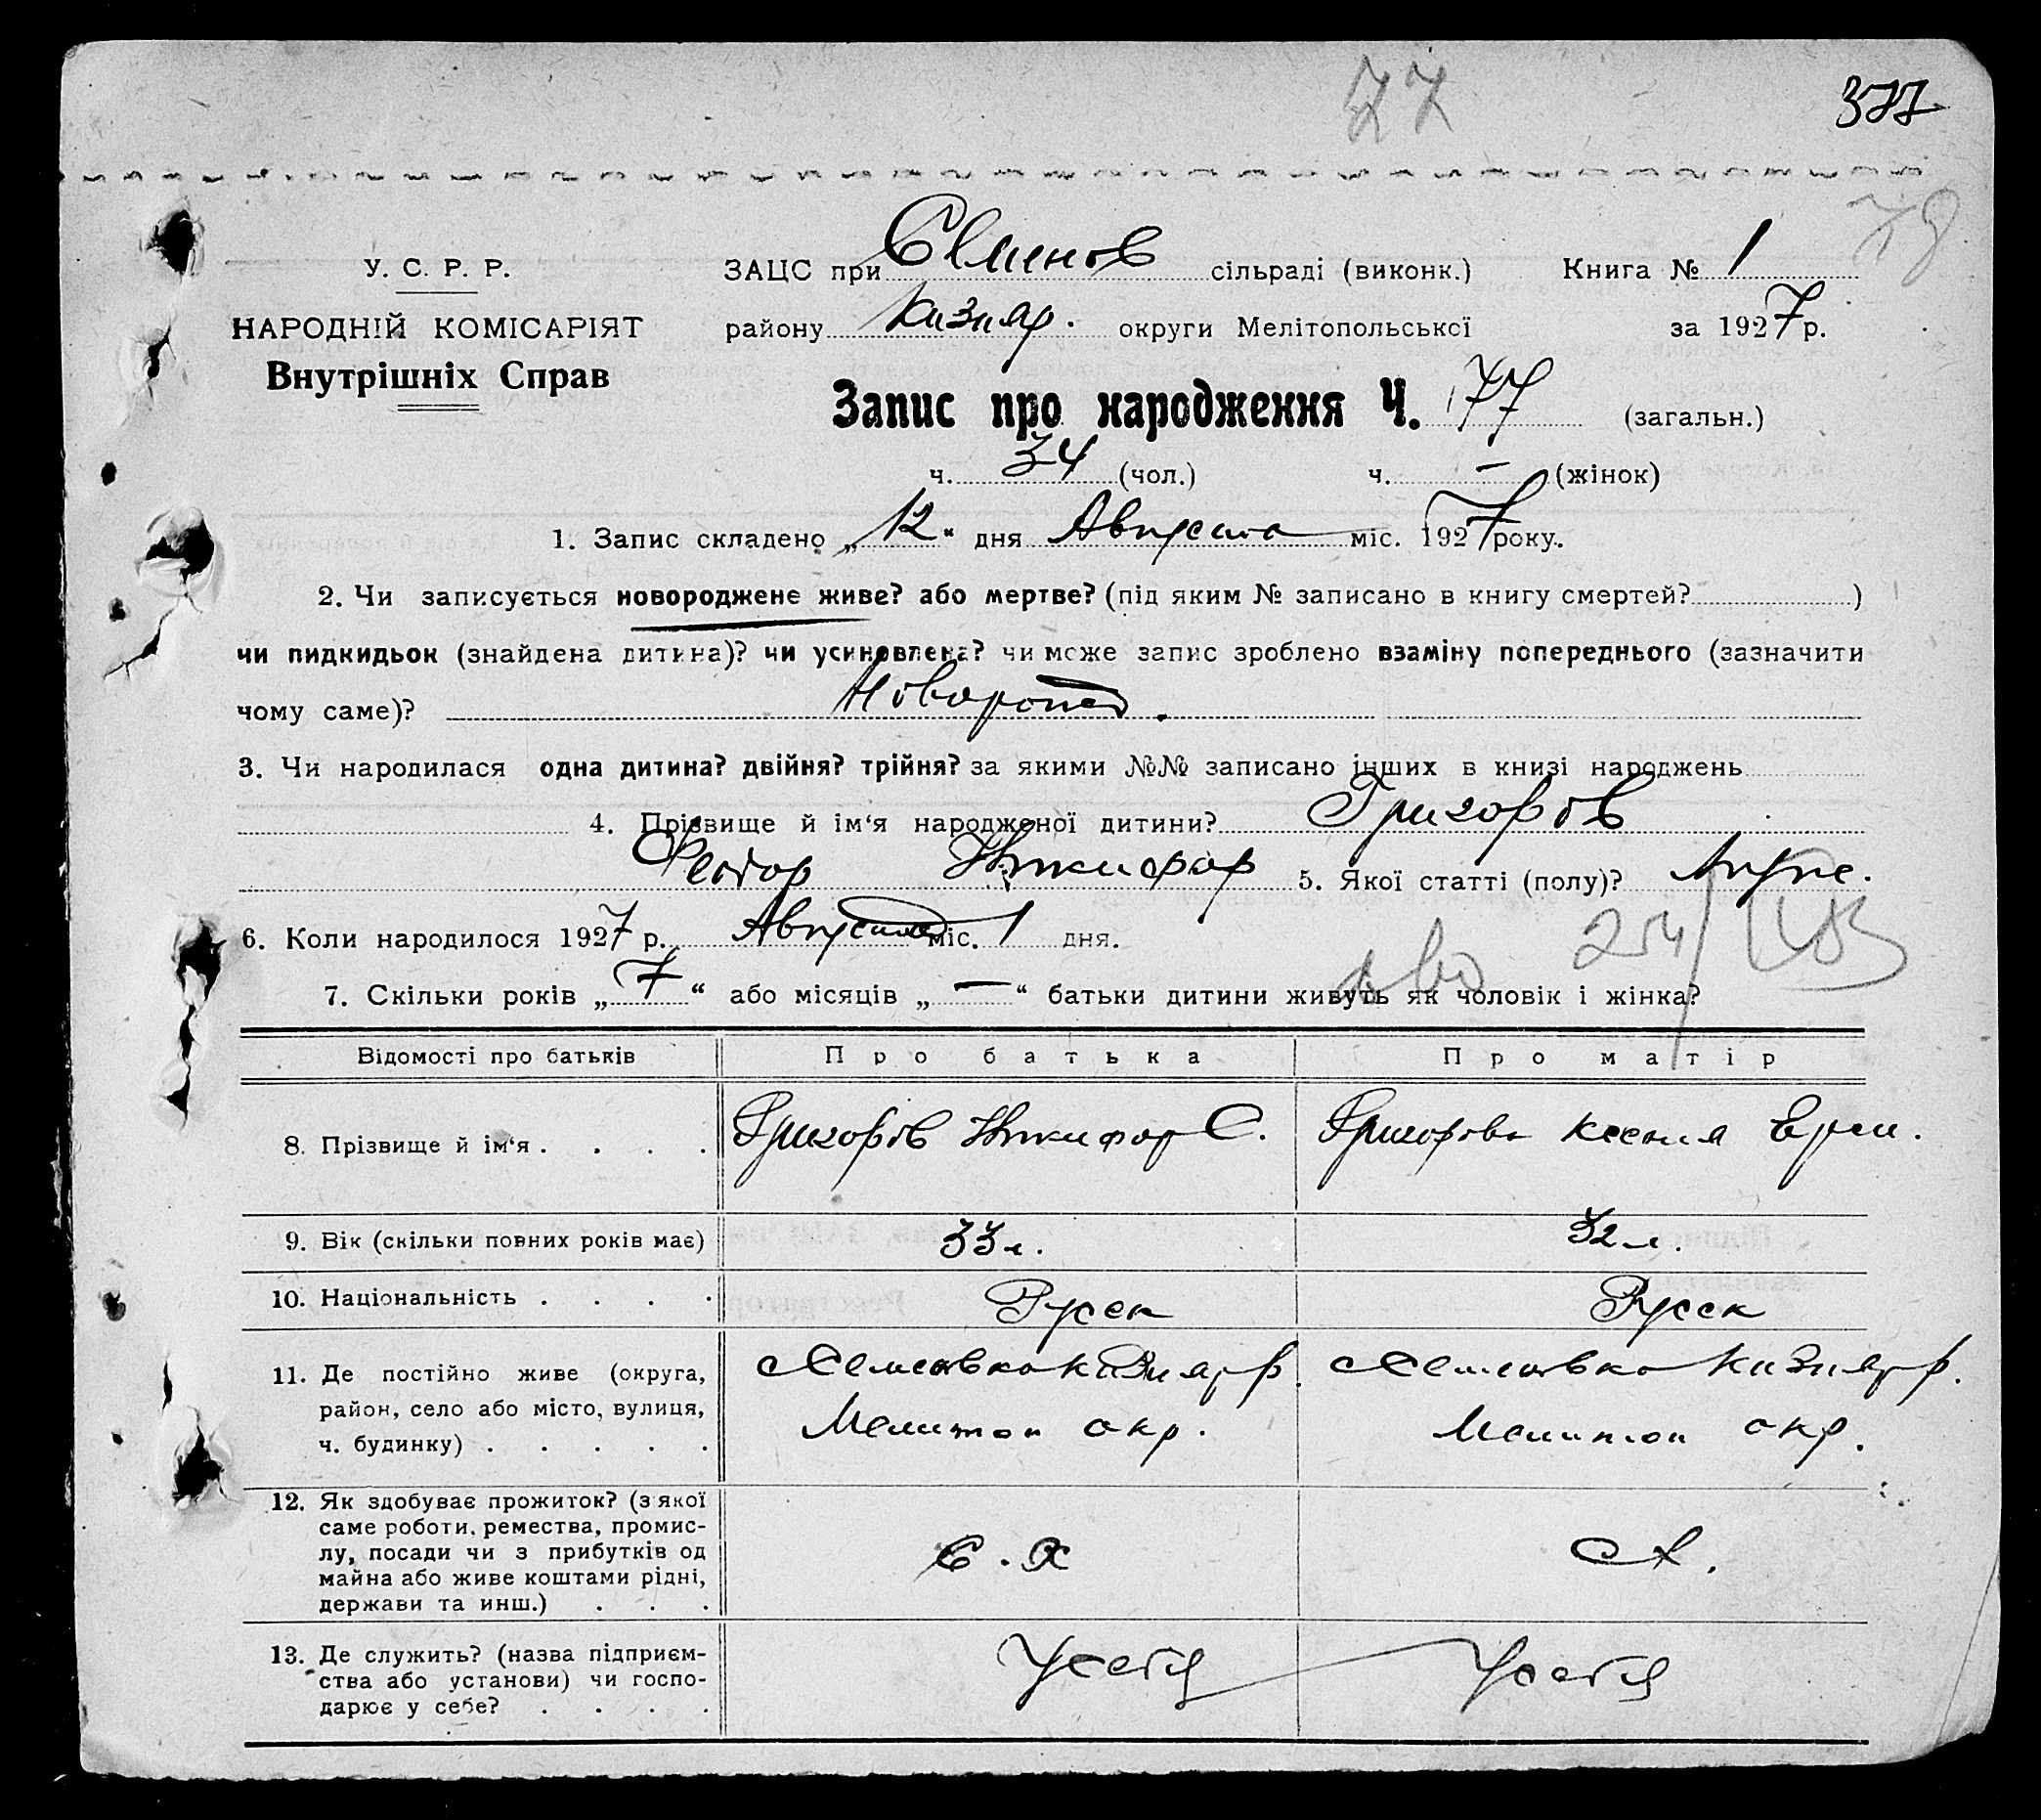 77
377
78
У. С. Р. Р.
НАРОДНІЙ КОМІСАРІЯТ
Внутрішніх Справ
ЗАЦС при сільраді (виконк.) Книга № 1
району Кизияр. округи Мелітопольської за 1927 р.
Запис про народження Ч. 77 (загальн.)
ч. 34 (чол.) ч. — (жінок)
1. Запис складено „12“ дня Августа міс. 1927 року.
2. Чи записується новороджене живе? або мертве? (під яким № записано в книгу смертей? )
чи пидкидьок (знайдена дитина)? чи усиновлена? чи може запис зроблено взаміну попереднього (зазначити
чому саме)? Новорожд.
3. Чи народилася одна дитина? двійня? трійня? за якими №№ записано інших в книзі народжень
4. Прізвище й ім‘я народженої дитини? Григоров
Феодор Никифор 5. Якої статті (полу)?
6. Коли народилося 1927 р. Августа міс. 1 дня.
7. Скільки років „7“ або місяців „—“ батьки дитини живуть як чоловік і жінка?
Відомості про батьків Про батька Про матір
8. Прізвище й ім‘я . . . . Григоров Никифор С. Григорова Ксения
9. Вік (скільки повних років має) 33 л. 32 л.
10. Національність . . . . Русск Русск
11. Де постійно живе (округа,
район, село або місто, вулиця,
ч. будинку) . . . . .
Кизияр р. Кизияр р.
Мелитоп окр. Мелитоп окр.
12. Як здобуває прожиток? (з якої
саме роботи, ремества, промис-
лу, посади чи з прибутків од
майна або живе коштами рідні,
держави та инш.) . . .
С. Х СХ.
13. Де служить? (назва підприєм-
ства або установи) чи госпо-
дарює у себе? . . . .
У себя У себя